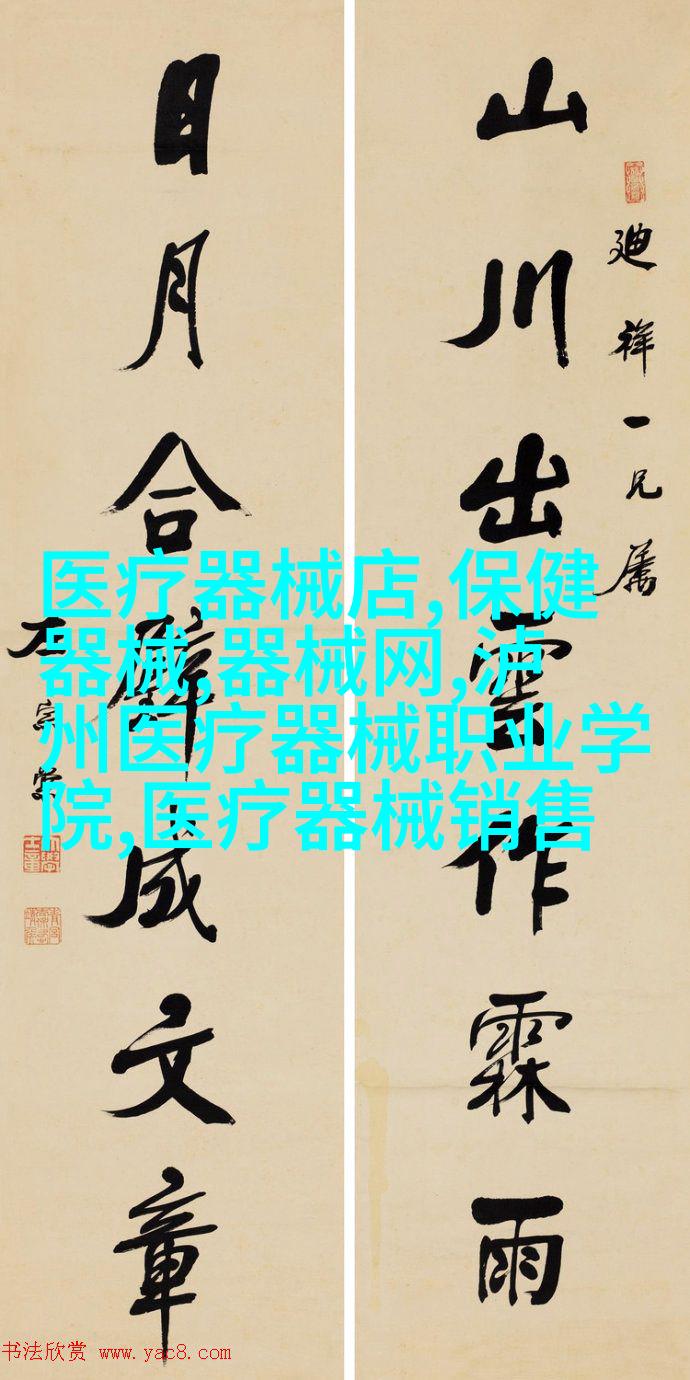 廸祥一兄属
山川出雲作霖雨
日月合璧成文章
左宗棠
医疗器械店,保健
器械,器械网,泸
州医疗器械职业学
院,医疗器械销售
书法欣赏 www.yac8.com